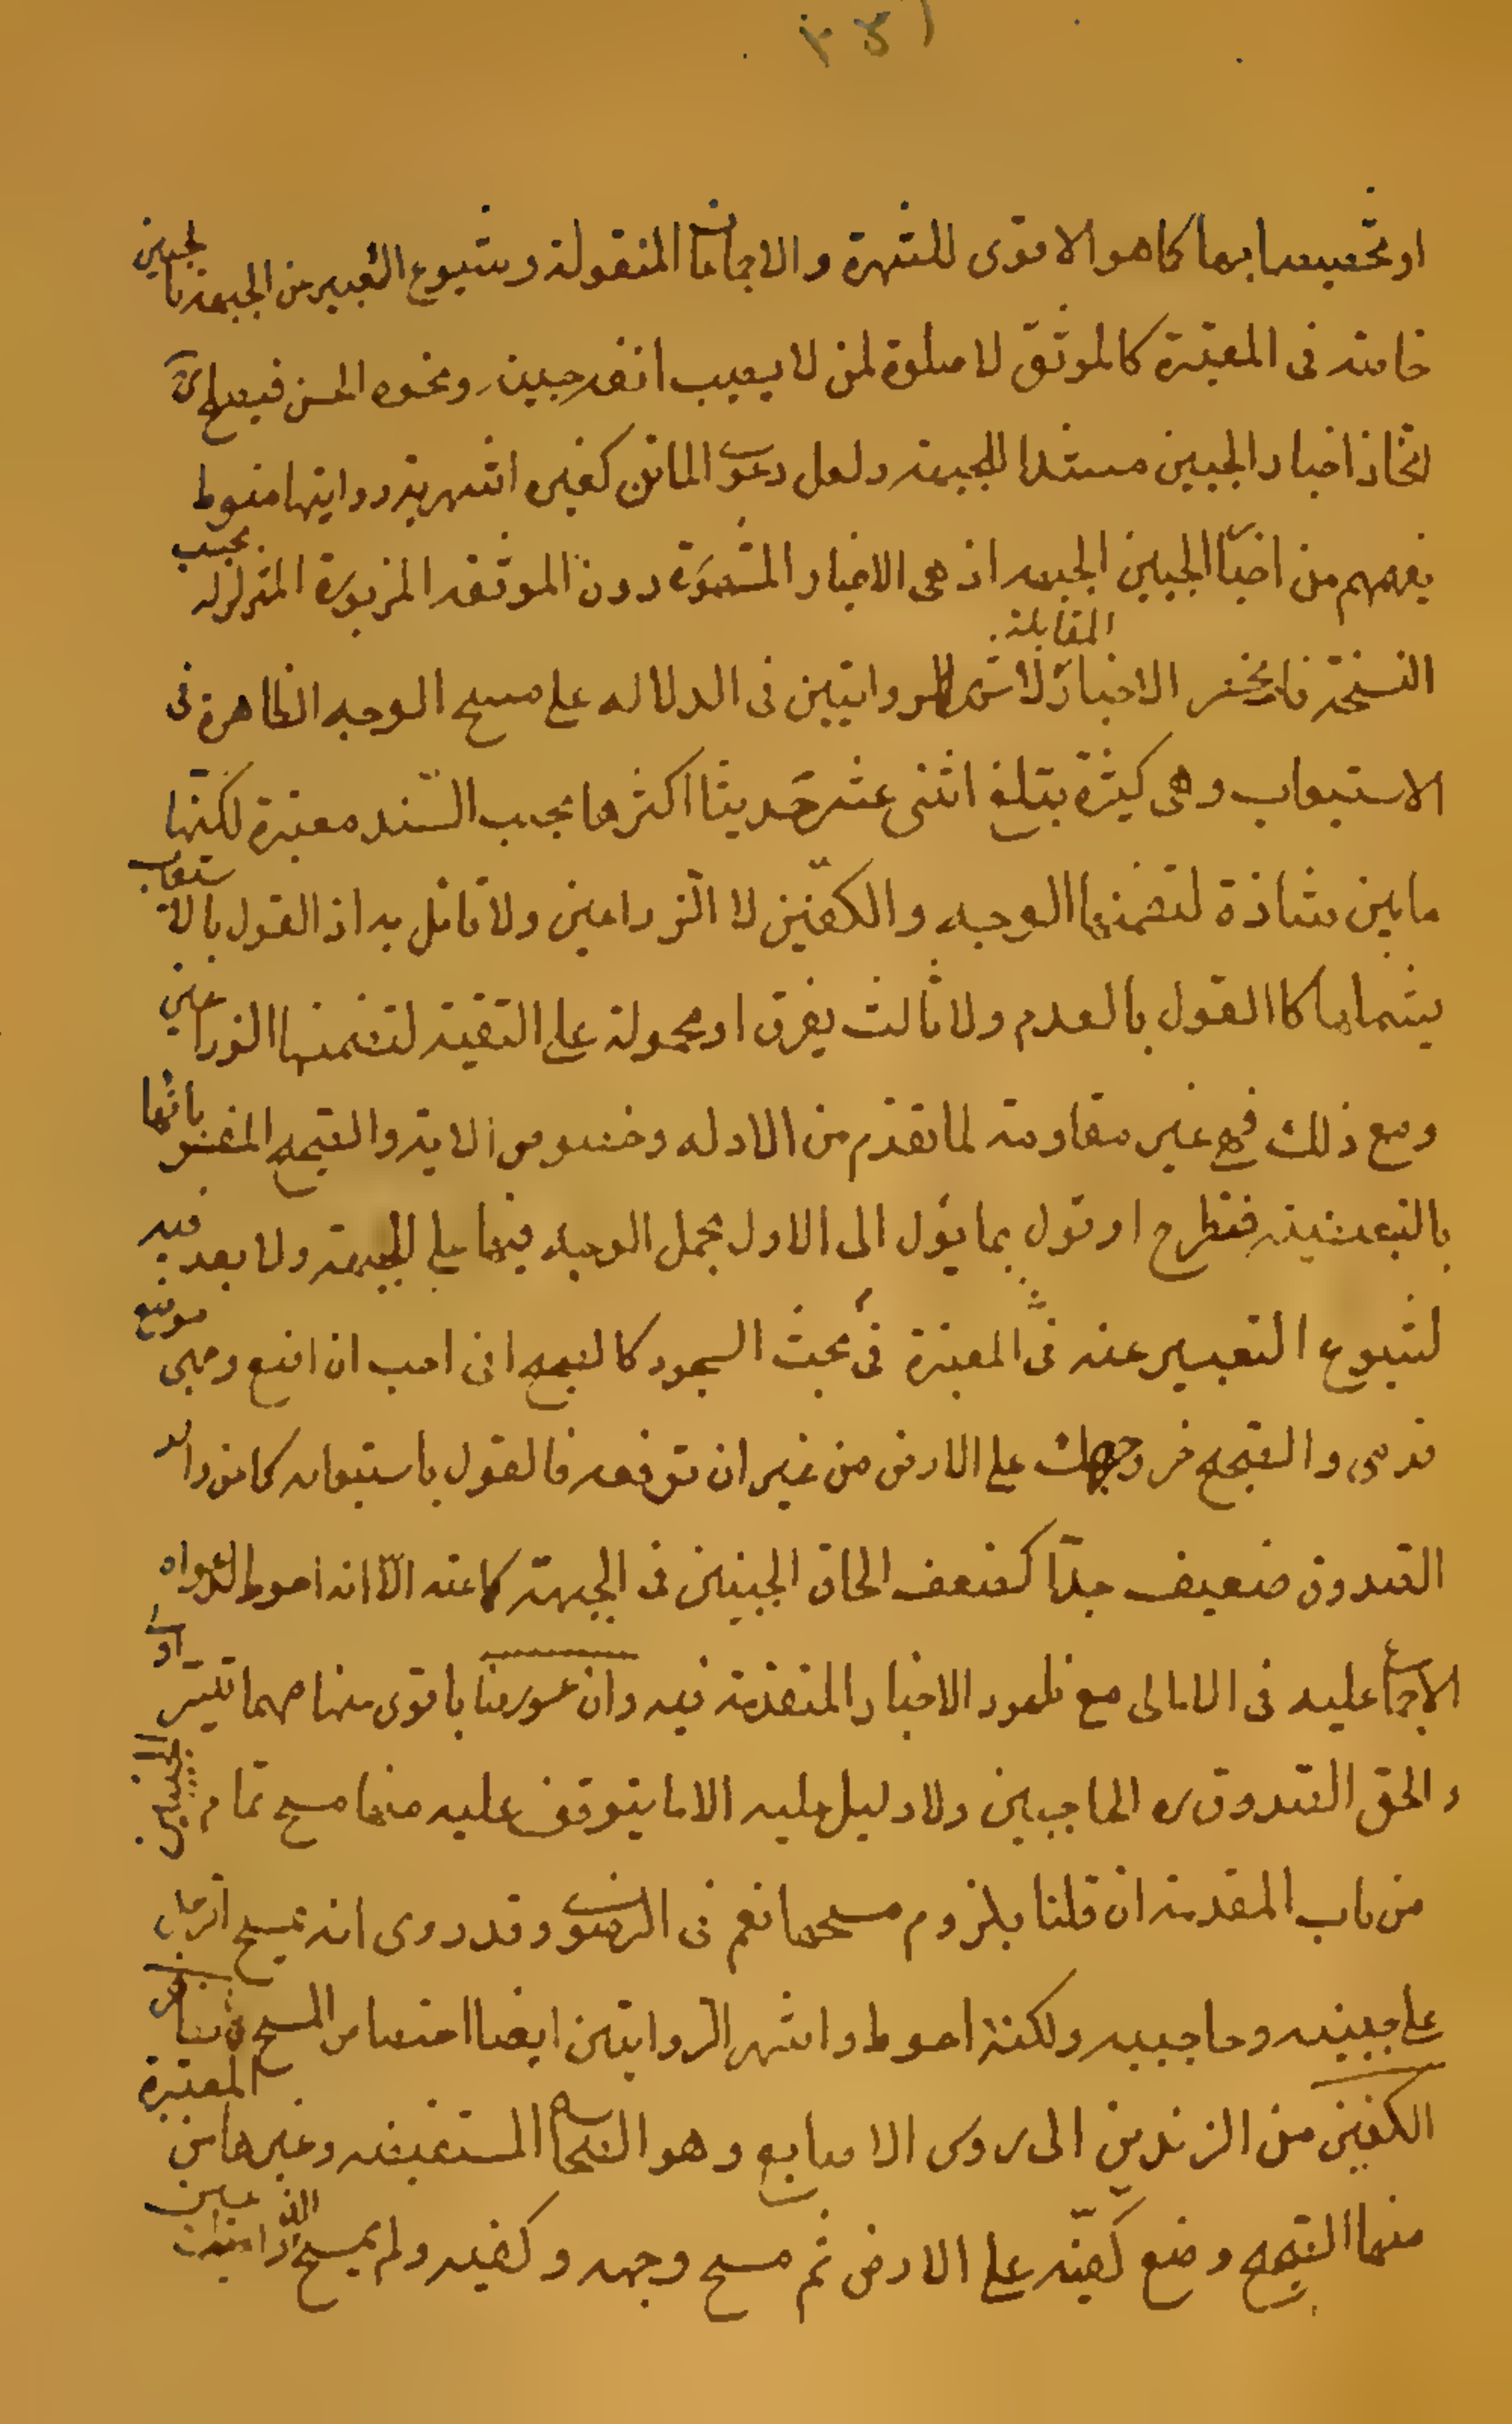 او تخصيصا بها كما هو الاقوى للشهرة والاجماعات المنقولة وشيوع التعبير عن الجبهة بالجبين
خاصة فى المعتبرة كالموثق لا صلوة لمن لا يصيب انفه جبينه ونحوه الحسن فيصلح
اتخاذ اخبار الجبين مستندا للجبهة ولعل دعوى الماتن كغيره اشهرية روايتها منوط
بفهمهم من اخبار الجبين الجبهة اذ هى الاخبار المشهورة دون الموثقة المزبورة المتزلزلة بحسب
النسخة فانحصر الاخبار المقابلة لاشهر الروايتين فى الدلالة على مسح الوجه الظاهرة فى
الاستيعاب وهى كثيرة تبلغ اثنى عشر حديثا اكثرها بحسب السند معتبرة لكنها
ما بين شاذة لتضمنها الوجه والكفين لا الذراعين ولا قائل به اذ القول بالاستيعاب
يشملها كالقول بالعدم ولا ثالث يفرق او محمولة على التقية لتضمنها الذراعين
ومع ذلك فهى غير مقاومة لما تقدم من الادلة وخصوص الاية والصحيح المفسر بائها
بالتبعيضية فتطرح او تول بما يؤل الى الاول بحمل الوجه فيها على الجبهة ولا بعد فيه
لشيوع التعبير عنه فى المعتبرة فى بحث السجود كالصحيح انى احب ان اضع وجهى موضع
قدمى والصحيح خر وجهك على الارض من غير ان ترفعه فالقول باستيعابه كما عن والد
الصدوق ضعيف جدا كضعف الحاق الجبينين فى الجبهة كما عنه الا انه احوط لدعواه
الاجماع عليه فى الامالى مع ظهور الاخبار المتقدمة فيه وان عورضنا باقوى منها مهما تيسر
والحق الصدوق ره الحاجبين ولا دليل عليه الا ما يتوقف عليه منها مسح تمام الجبينين
من باب المقدمة ان قلنا بلزوم مسحهما نعم فى الرضوى وقد روى انه يمسح الرجل
على جبينيه وحاجبيه ولكنه احوط واشهر الروايتين ايضا اختصاص المسح فى
الكفين من الزندين الى روس الاصابع وهو الصحاح المستفيضة وغيرها من المعتبرة
منها الصحيح وضع كفيه على الارض ثم مسح وجهه وكفيه ولم يمسح الذراعين